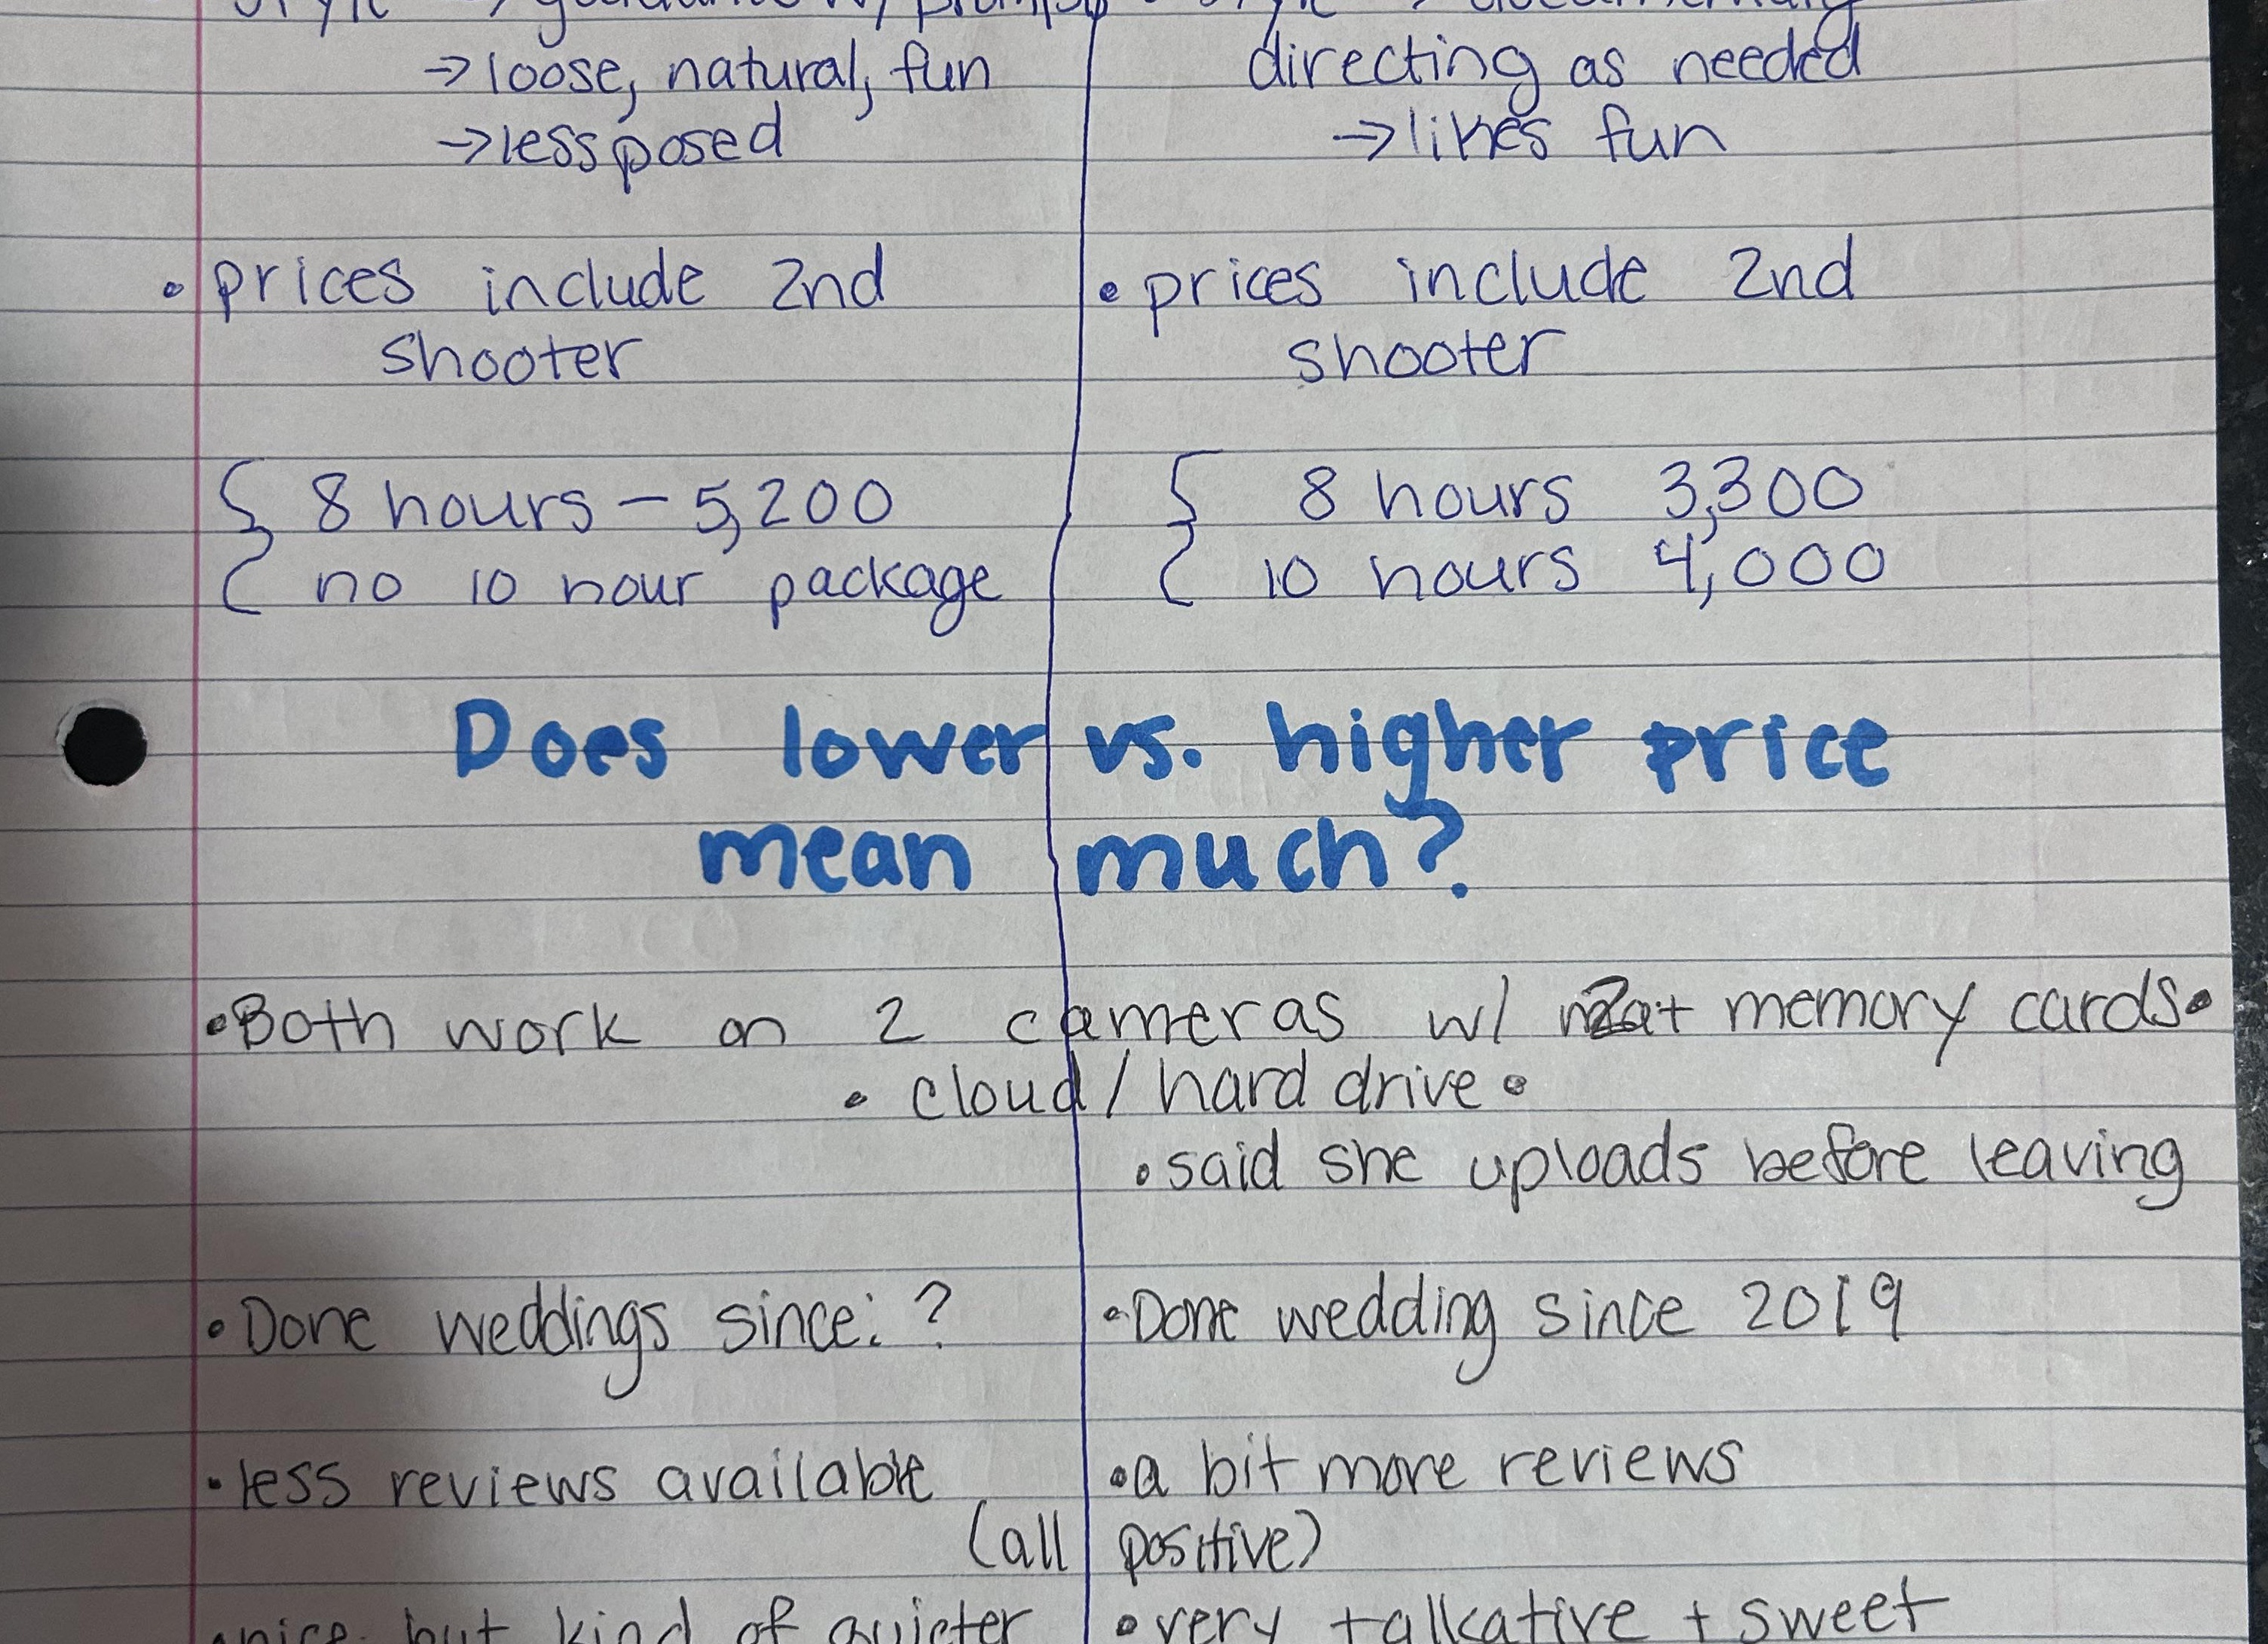 style → guidance w/ prompts
→ loose, natural, fun
→ less posed
• prices include 2nd
shooter
{ 8 hours – 5,200
no 10 hour package
style → documentary
directing as needed
→ likes fun
• prices include 2nd
shooter
{ 8 hours 3,300
10 hours 4,000
Does lower vs. higher price
mean much?
• Both work on 2 cameras w/ 2+ memory cards •
• cloud / hard drive •
• said she uploads before leaving
• Done weddings since: ?
• Done wedding since 2019
• less reviews available
• a bit more reviews
(all positive)
• nice but kind of quieter
• very talkative + sweet